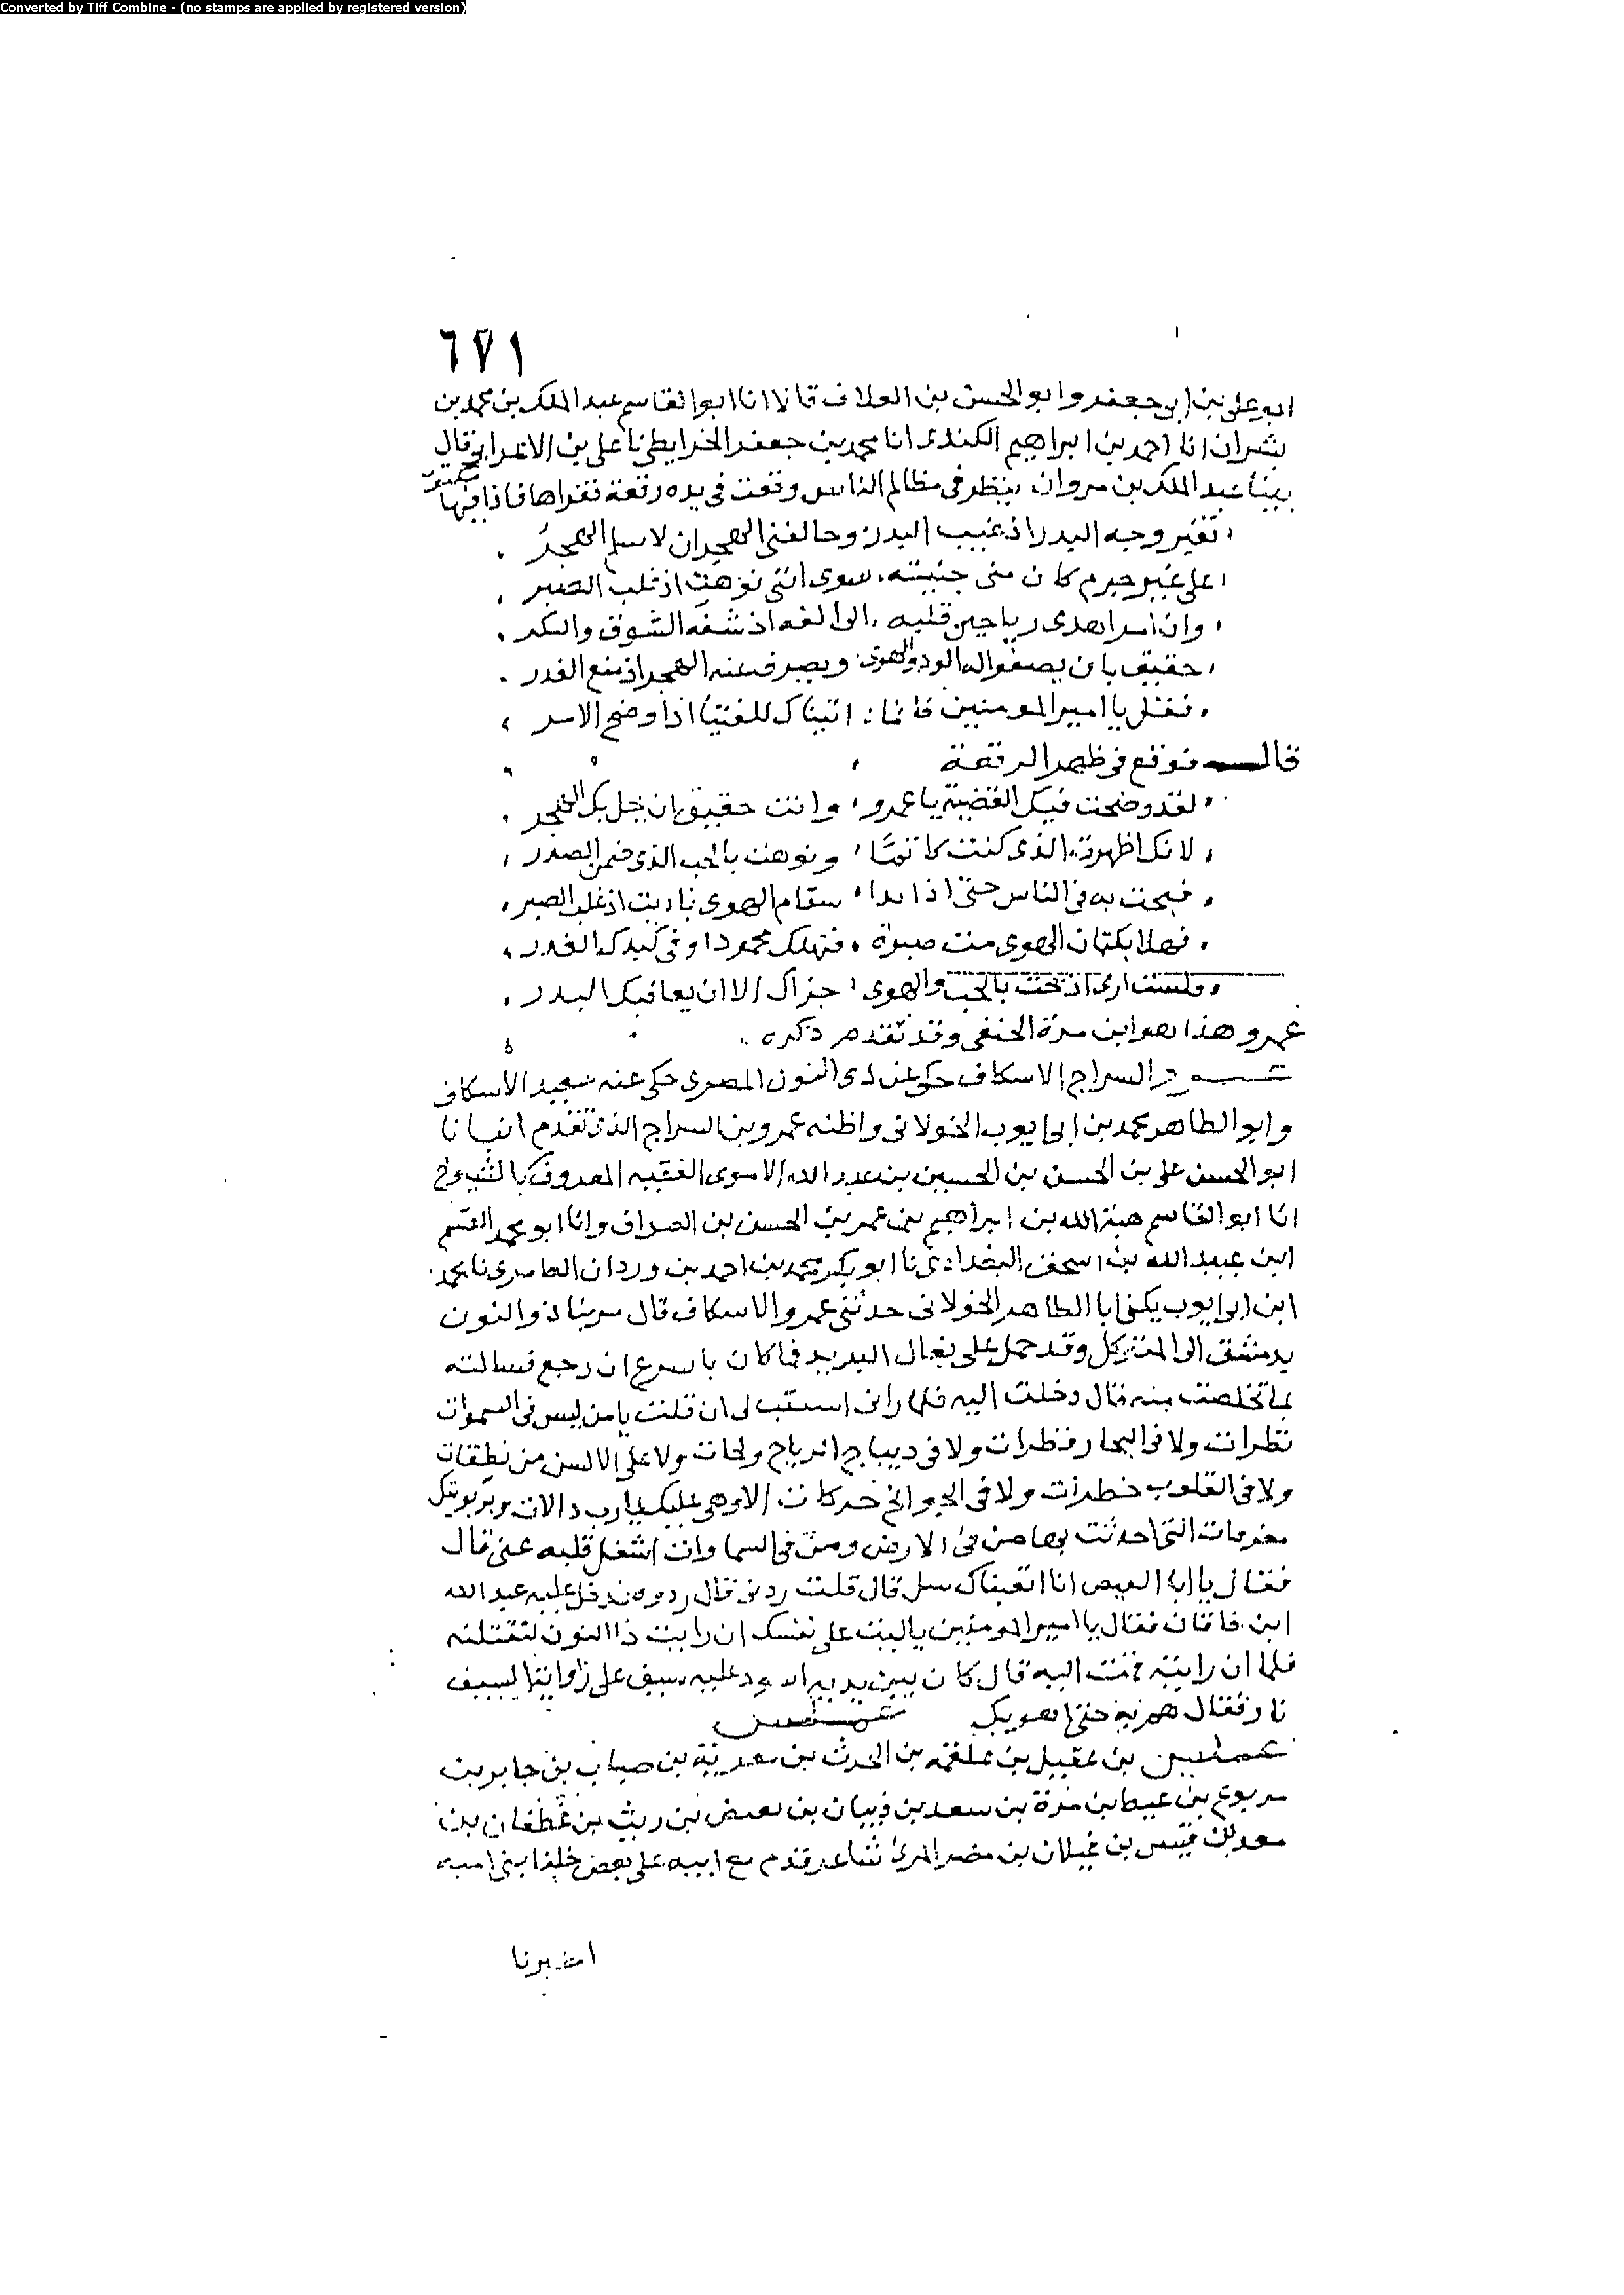 Converted by Tiff Combine - (no stamps are applied by registered version)
٦٧١
ابو علي بن ابي جعفر وابو الحسن بن العلاف قالا انا ابو القاسم عبد الملك بن محمد بن
بشران انا احمد بن ابراهيم الكندي انا محمد بن جعفر الخرايطي نا علي بن الاعرابي قال
بينا عبد الملك بن مروان ينظر في مظالم الناس وقعت في يده رقعة فقراها فاذا فيها مكتوب
تغير وجه البدر اذ غيب البدر وحالفني الهجران لا سلم الهجر
على غير جرم كان مني جنيته سوى انني نوهت اذ غلب الصبر
وان امرا اهدى رياحين قلبه الى الفه اذ شفه الشوق والفكر
حقيق بان يصفوا له الود والهوى ويصرف عنه الهجر اذ منع الغدر
فقل يا امير المومنين فانما اتيناك للفتيا اذا وضح الامر
قال فوقع في ظهر الرقعة
لقد وضحت فيك القضية يا عمرو وانت حقيق ان يحل بك الهجر
لانك اظهرت الذي كنت كاتما ونوهت بالحب الذي ضمن الصدر
فبحت به في الناس حتى اذا بدا سقام الهوى ناديت اذ غلب الصبر
فهلا بكتمان الهوى مت صبوة فتهلك محمودا وفي كيدك الغدر
ولست ارى اذ بحت بالحب والهوى جزاك الا ان يعاقبك البدر
عمرو هذا هو ابن مرة الحنفي وقد تقدم ذكره
عمرو السراج الاسكاف حكى عن ذي النون المصري حكى عنه سعيد الاسكاف
وابو الطاهر محمد بن ابي ايوب الخولاني واظنه عمرو بن السراج الذي تقدم انبانا
ابو الحسن علي بن الحسن بن الحسين بن عبد الله الاموي الفقيه المعروف بالشيوخ
انا ابو القاسم هبة الله بن ابراهيم بن عمر بن الحسن بن الصواف وانا ابو محمد القسم
ابن عبيد الله بن اسحق البغدادي نا ابو بكر محمد بن احمد بن وردان العامري نا محمد
ابن ابي ايوب يكنى ابا الطاهر الخولاني حدثني عمرو الاسكاف قال مر بنا ذو النون
بدمشق الى المتوكل وقد حمل على بغال البريد فما كان باسرع ان رجع فسالته
بما تخلصت منه قال دخلت اليه فلما راني استتب لي ان قلت يا من ليس في السموات
نظرات ولا في البحار قطرات ولا في ديباج الرياح ولجات ولا على الالسن من نطقات
ولا في القلوب خطرات ولا في الجوانح حركات الا وهي عليك يا رب دالات وبربوبيتك
معترفات التي احدثت بها من في الارض ومن في السماوات اشغل قلبه عني قال
فقال يا ابا الفيض انا اتعبناك سل قال قلت ردني قال ردوه فدخل عليه عبيد الله
ابن خاقان فقال يا امير المومنين ياليت على نفسك ان رايت ذا النون لتقتلنه
فلما ان رايته قمت اليه قال كان بين يديه اسود عليه سيف على زوايتي السيف
نار فقال هم به حتى اهم بك عملس
عملس بن عقيل بن علفة بن الحرث بن معوية بن ضباب بن جابر بن
يربوع بن غيظ بن مرة بن سعد بن ذبيان بن بغيض بن ريث بن غطفان بن
سعد بن قيس بن غيلان بن مضر المري شاعر قدم مع ابيه على بعض خلفا بني اميه
اخبرنا